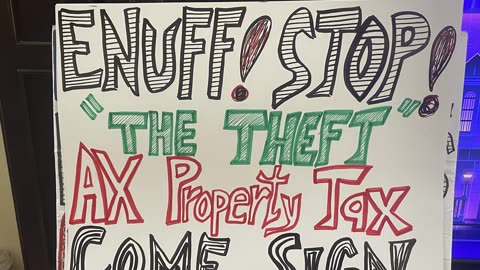 ENUFF! STOP!
"THE THEFT"
AX Property Tax
COME SIGN